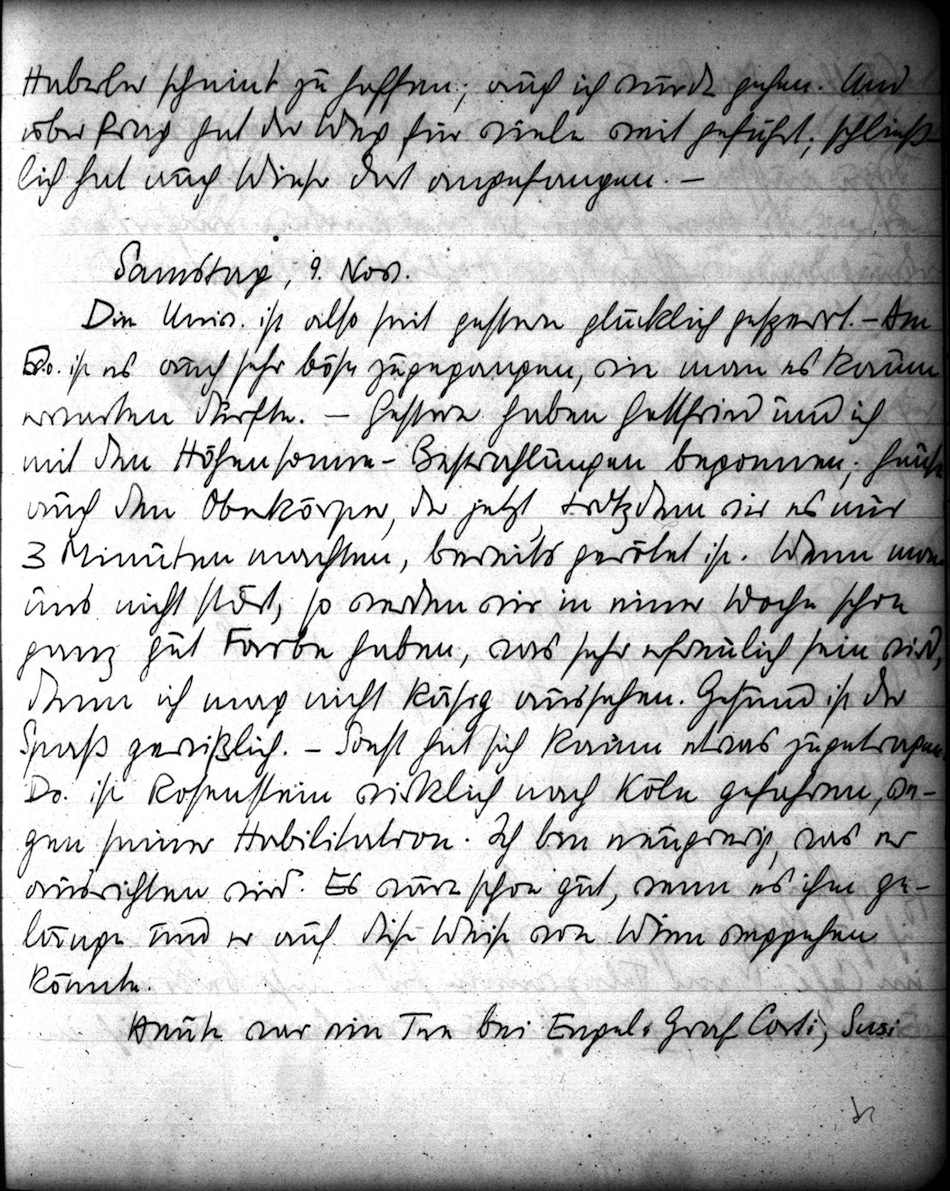 Haberler scheint zu hoffen; auch ich würde gehen. Und
über Prag hat der Weg für viele weit geführt; schließ-
lich hat auch Wiese dort angefangen. –
Samstag, 9. Nov.
Die Univ. ist also seit gestern glücklich gesperrt. – Am
Do. ist es auch sehr böse zugegangen, wie man es kaum
erwarten durfte. – Gestern haben Gottfried und ich
mit den Höhensonne-Bestrahlungen begonnen; heute
auch den Oberkörper, der jetzt, trotzdem wir es nur
3 Minuten machten, bereits gerötet ist. Wenn man
uns nicht stört, so werden wir in einer Woche schon
ganz gut Farbe haben, was sehr erfreulich sein wird,
denn ich mag nicht käsig aussehen. Gesund ist der
Spaß gewißlich. – Sonst hat sich kaum etwas zugetragen.
Do. ist Rosenstein wirklich nach Köln gefahren, we-
gen seiner Habilitation. Ich bin neugierig, was er
ausrichten wird. Es wäre schon gut, wenn es ihm ge-
länge und er auf diese Weise von Wien weggehen
könnte.
Heute war ein Tee bei Engel. Graf Corti, Susi